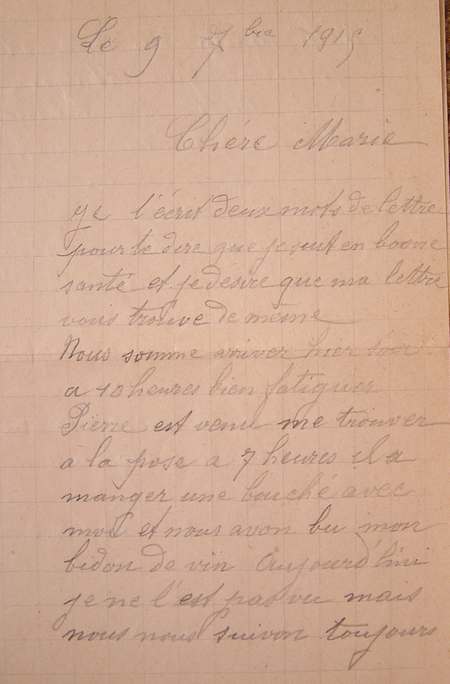 Le 9 7bre 1915
Chére Marie
Je t'écrit deux mots de lettre
pour te dire que je suit en bonne
santé et je desire que ma lettre
vous trouve de meme
Nous somme ariver hier soir
a 10 heures bien fatiguer
Pierre est venu me trouver
a la pose a 7 heures il a
manger une bouché avec
moi et nous avon bu mon
bidon de vin Aujourd'hui
je ne l'est pas vu mais
nous nous suivon toujours